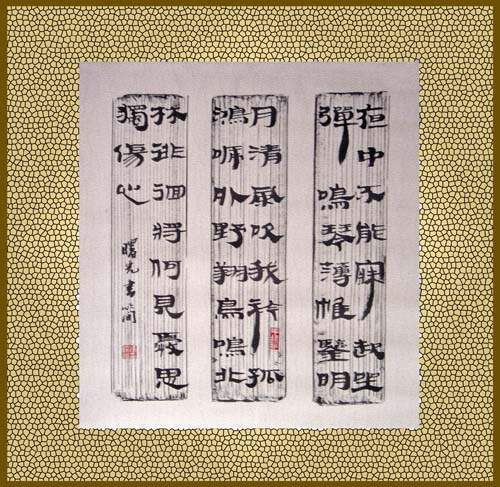 夜中不能寐起坐
彈鳴琴薄帷鑒明
月清風吹我衿孤
鴻號外野翔鳥鳴北
林徘徊將何見憂思
獨傷心
曙光書簡